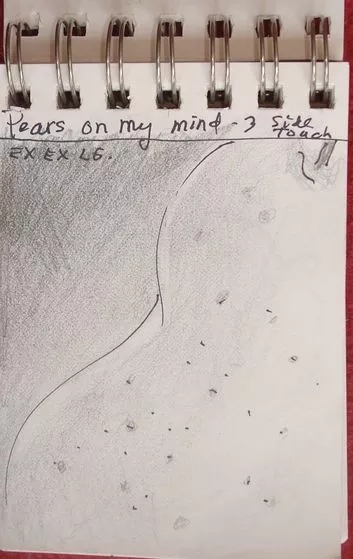 Pears on my mind - 3 Side
Touch
EX EX LG.